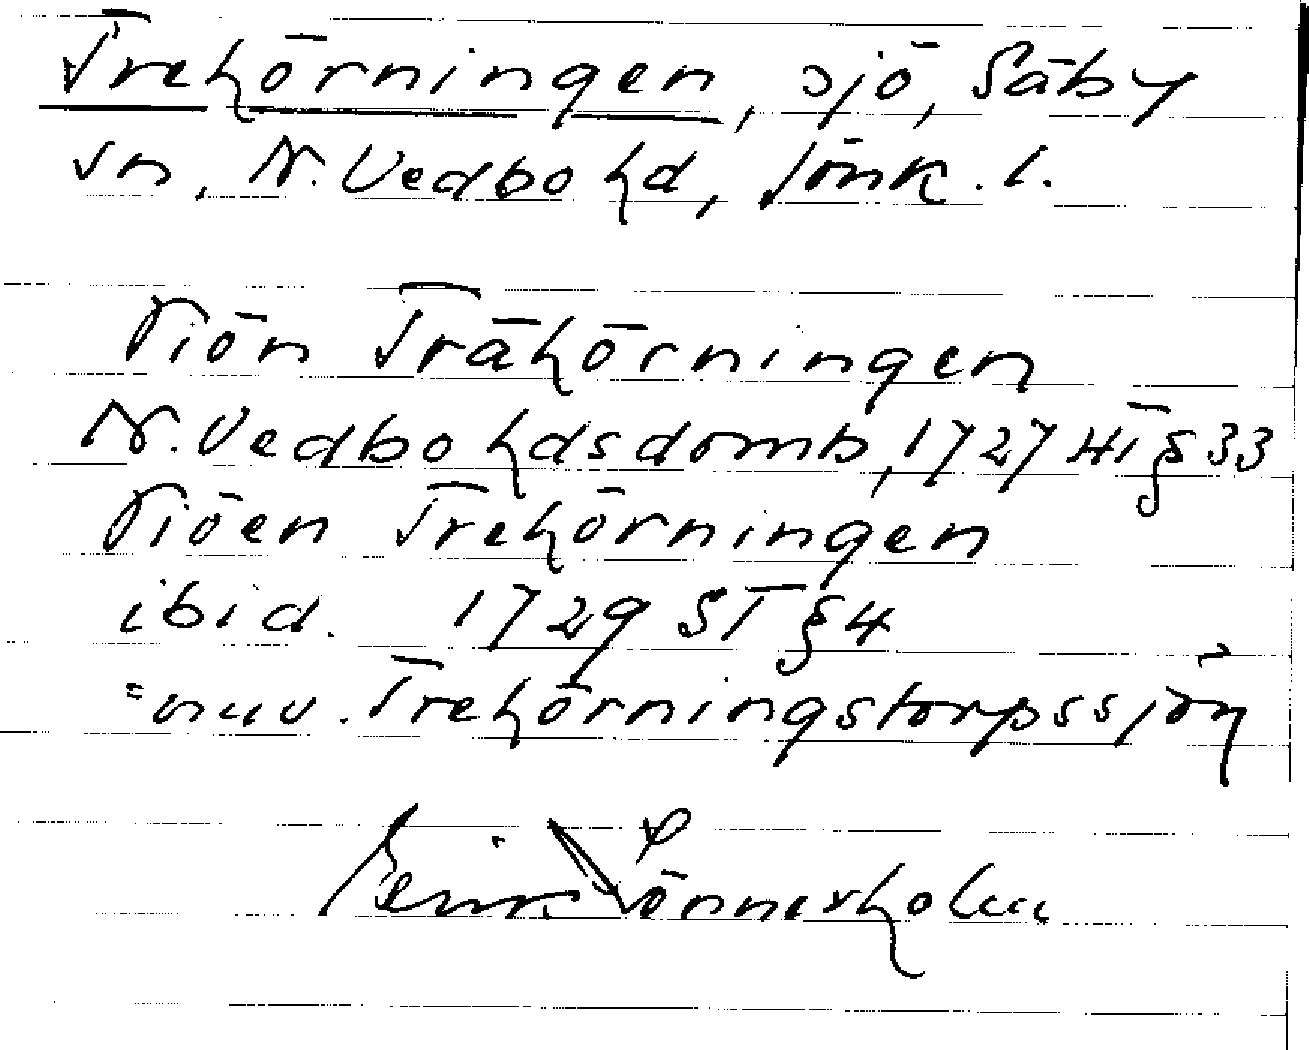 Trehörningen, sjö, Säby
sn, N. Vedbo hd, Jönk. l.
Siön Trähörningen
N. Vedbo hds domb, 1727 HT § 33
Siöen Trehörningen
ibid. 1729 ST § 4
= nuv. Trehörningstorpssjön